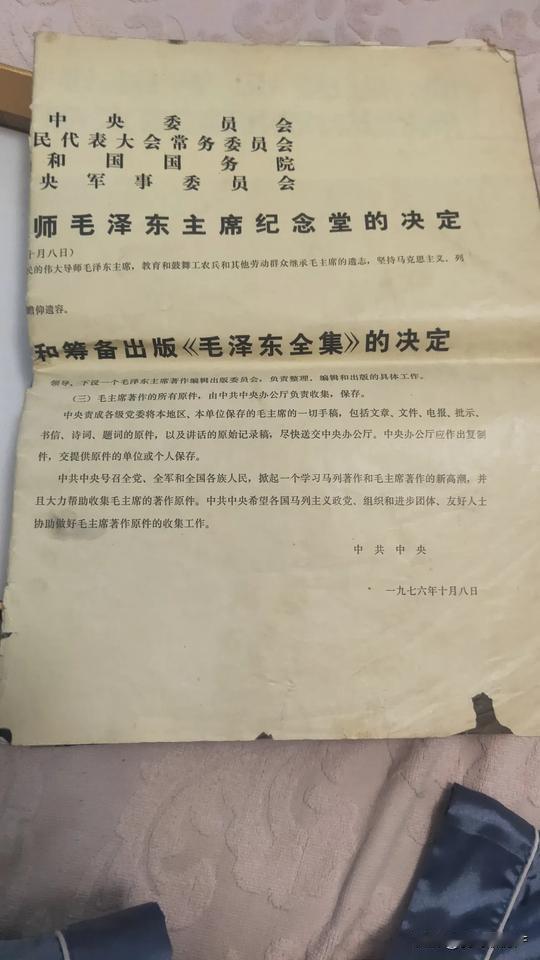 中央委员会
民代表大会常务委员会
和国国务院
央军事委员会
师毛泽东主席纪念堂的决定
十月八日）
民的伟大导师毛泽东主席，教育和鼓舞工农兵和其他劳动群众继承毛主席的遗志，坚持马克思主义、列
瞻仰遗容。
和筹备出版《毛泽东全集》的决定
领导，下设一个毛泽东主席著作编辑出版委员会，负责整理、编辑和出版的具体工作。
（三）毛主席著作的所有原件，由中共中央办公厅负责收集，保存。
中央责成各级党委将本地区、本单位保存的毛主席的一切手稿，包括文章、文件、电报、批示、
书信、诗词、题词的原件，以及讲话的原始记录稿，尽快送交中央办公厅。中央办公厅应作出复制
件，交提供原件的单位或个人保存。
中共中央号召全党、全军和全国各族人民，掀起一个学习马列著作和毛主席著作的新高潮，并
且大力帮助收集毛主席的著作原件。中共中央希望各国马列主义政党、组织和进步团体、友好人士
协助做好毛主席著作原件的收集工作。
中共中央
一九七六年十月八日